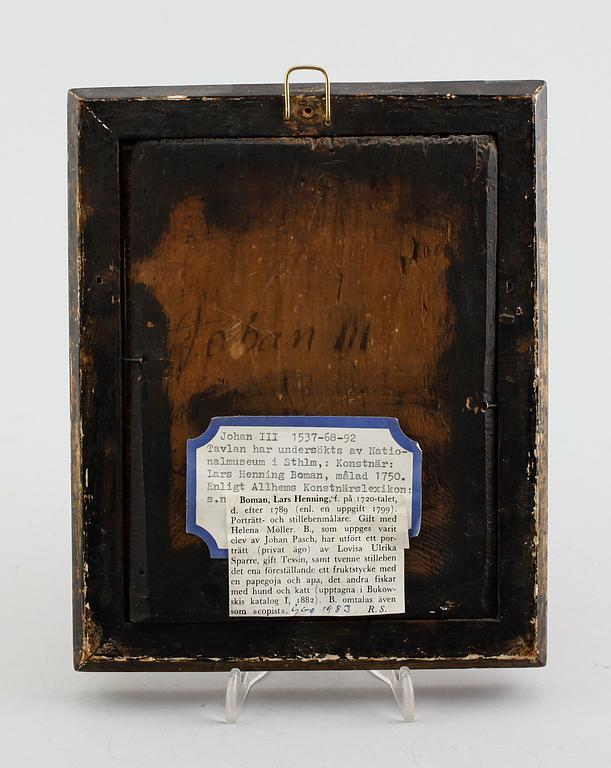 Johan III
Johan III 1537-68-92
Tavlan har undersökts av Natio-
nalmuseum i Sthlm,: Konstnär:
Lars Henning Boman, målad 1750.
Enligt Allhems Konstnärslexikon:
s.n
Boman, Lars Henning, f. på 1720-talet,
d. efter 1789 (enl. en uppgift 1799).
Porträtt- och stillebenmålare. Gift med
Helena Möller. B., som uppges varit
elev av Johan Pasch, har utfört ett por-
trätt (privat ägo) av Lovisa Ulrika
Sparre, gift Tessin, samt tvenne stilleben
det ena föreställande ett fruktstycke med
en papegoja och apa, det andra fiskar
med hund och katt (upptagna i Bukow-
skis katalog I, 1882). B. omtalas även
som »copist». 1983 R.S.